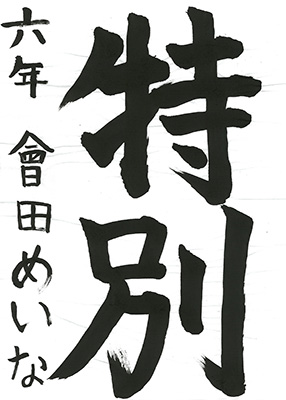 特別
六年 會田めいな